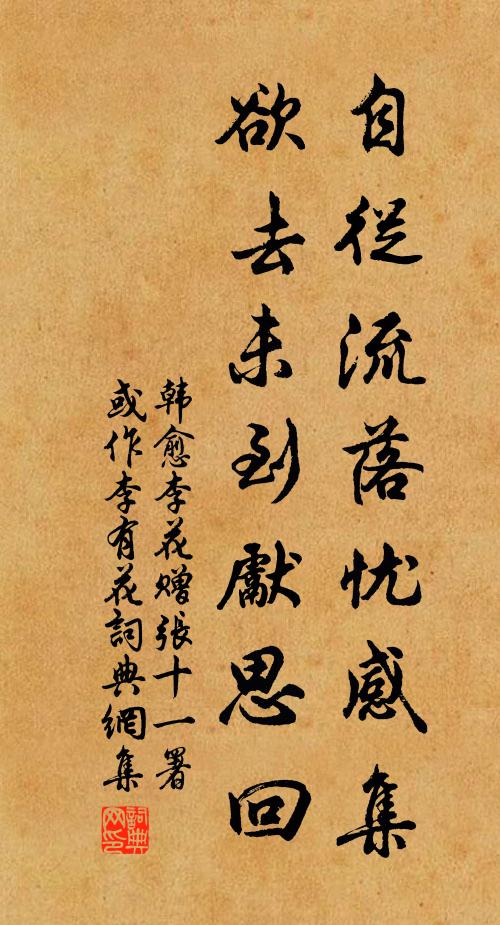 自從流落忧感集
欲去未到獻思回
韩愈李花赠張十一署
或作李有花詞典網集
詞典网印